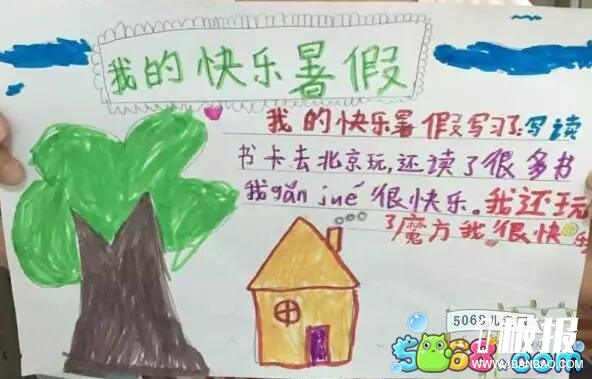 我的快乐暑假
我的快乐暑假写习了写读
书卡去北京玩,还读了很多书
我gǎn jué很快乐。我还玩
了魔方我很快乐
5068儿童网
板报
5068.com
WWW.BANBAO.COM